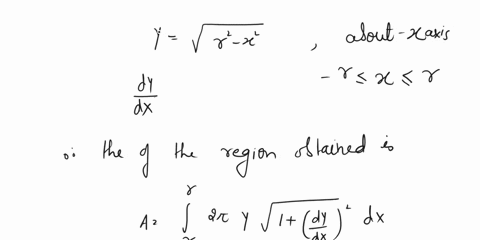 Y = √(r² - x²) , about - x axis
- r ≤ x ≤ r
dy/dx
∴ the g the region obtained is
A = ∫ r 2π y √(1 + (dy/dx)² dx